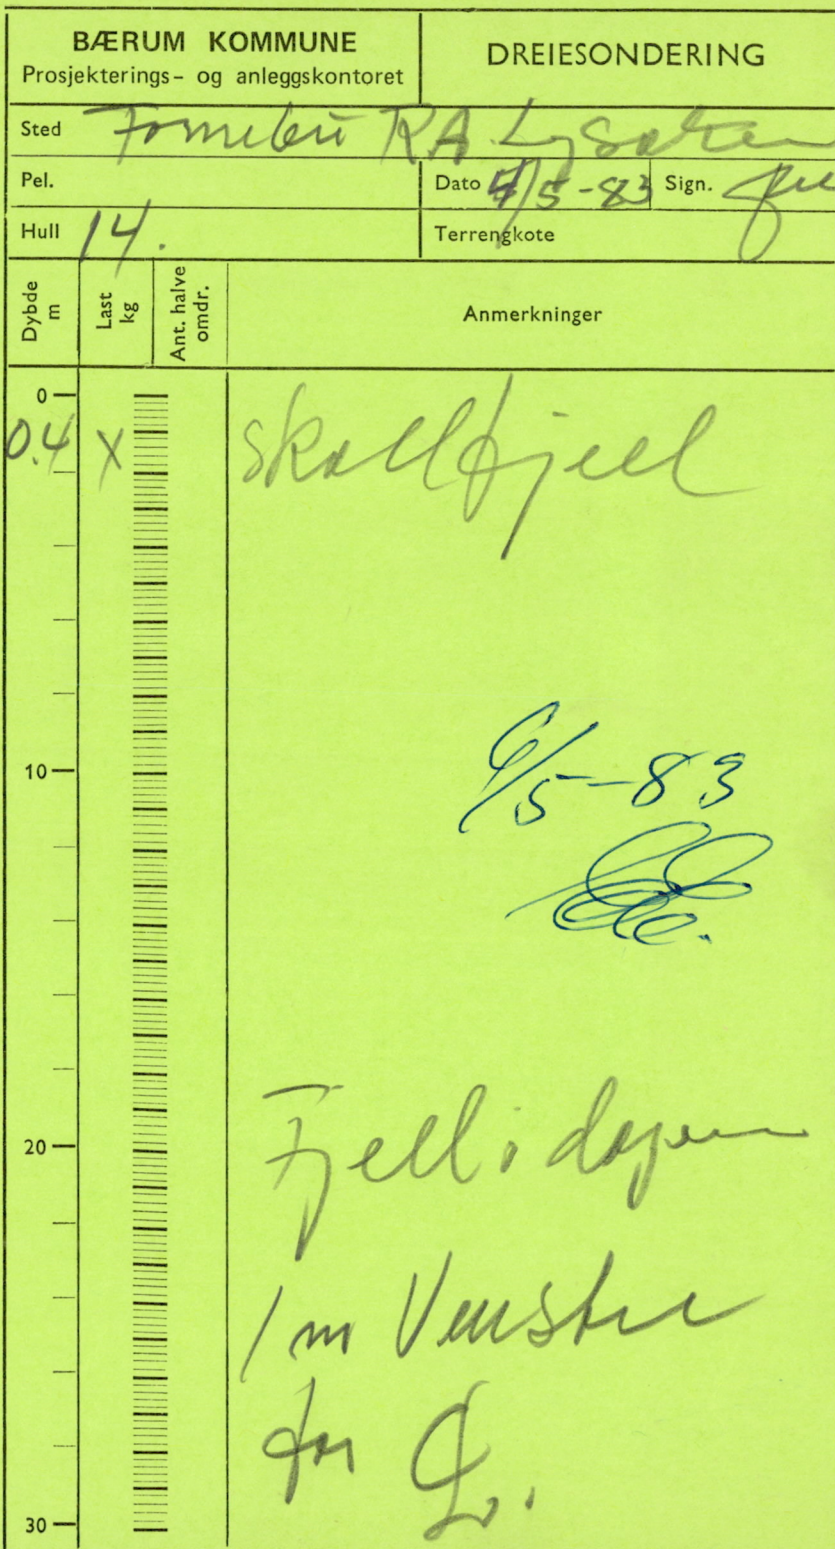 BÆRUM KOMMUNE
Prosjekterings- og anleggskontoret
DREIESONDERING
Sted Fornebu RA Lysaker
Pel.
Dato 4/5-83 Sign.
Hull 14.
Terrengkote
Dybde m
Last kg
Ant. halve omdr.
Anmerkninger
0
0.4 X skallfjell
10
6/5-83
20
Fjell i dagen
1 m Venstre
for ℄.
30